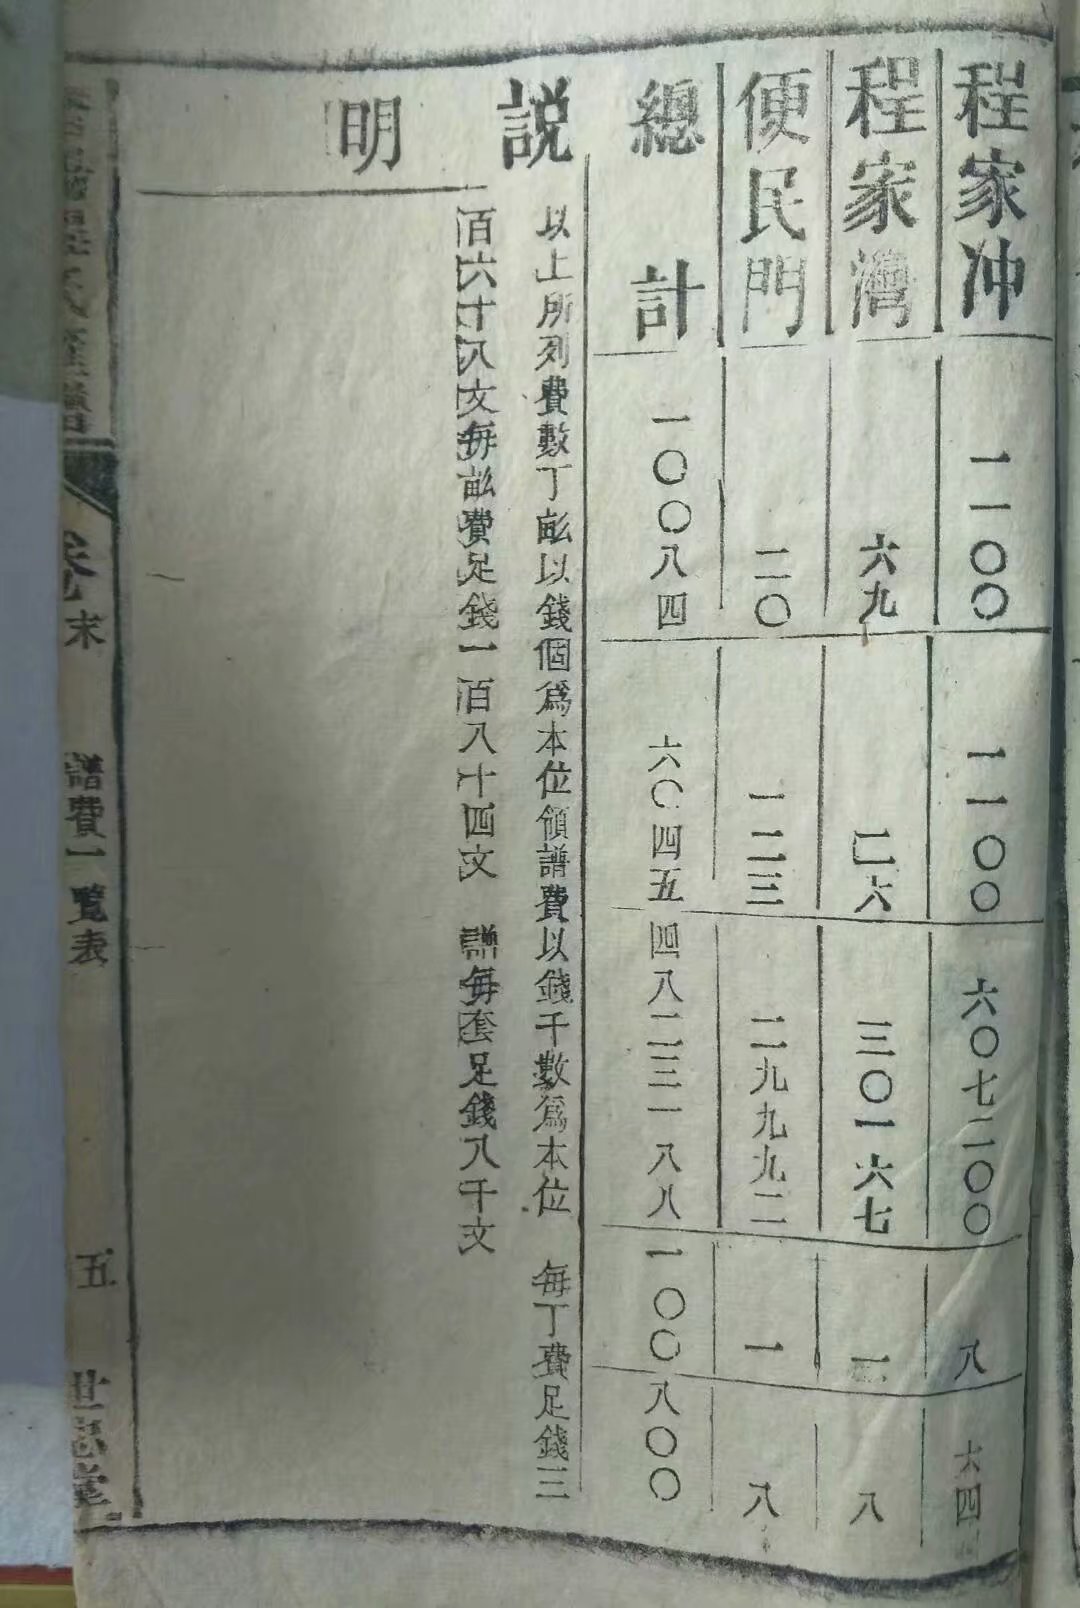 程家冲 一一〇〇 一一〇〇 六〇七二〇〇 八 六四
程家灣 六九 二六 三〇一六七 一 八
便民門 二〇 一二三 二九九九二 一 八
總計 一〇〇八四 六〇四五 四八二三一八八 一〇〇 八〇〇
説明
以上所列費數丁畝以錢個爲本位領譜費以錢千數爲本位 每丁費足錢三
百六十八文每畝費足錢一百八十四文 譜每套足錢八千文
氏
卷末 譜費一覽表 五 世忠堂